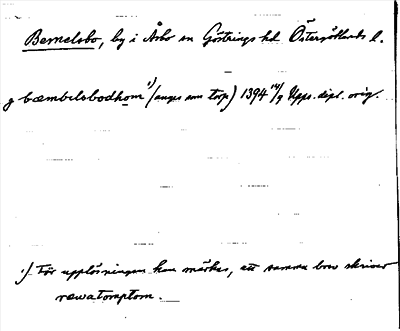 Bemelsbo, by i Åsbo sn Göstrings hd Östergötlands l.
g bæmbelsbodhom ¹) (anges som torp) 1394 14/9 Upps. dipl. orig.
¹) För upplösningen kan märkas, att samma brev skriver
ræwatorptom.